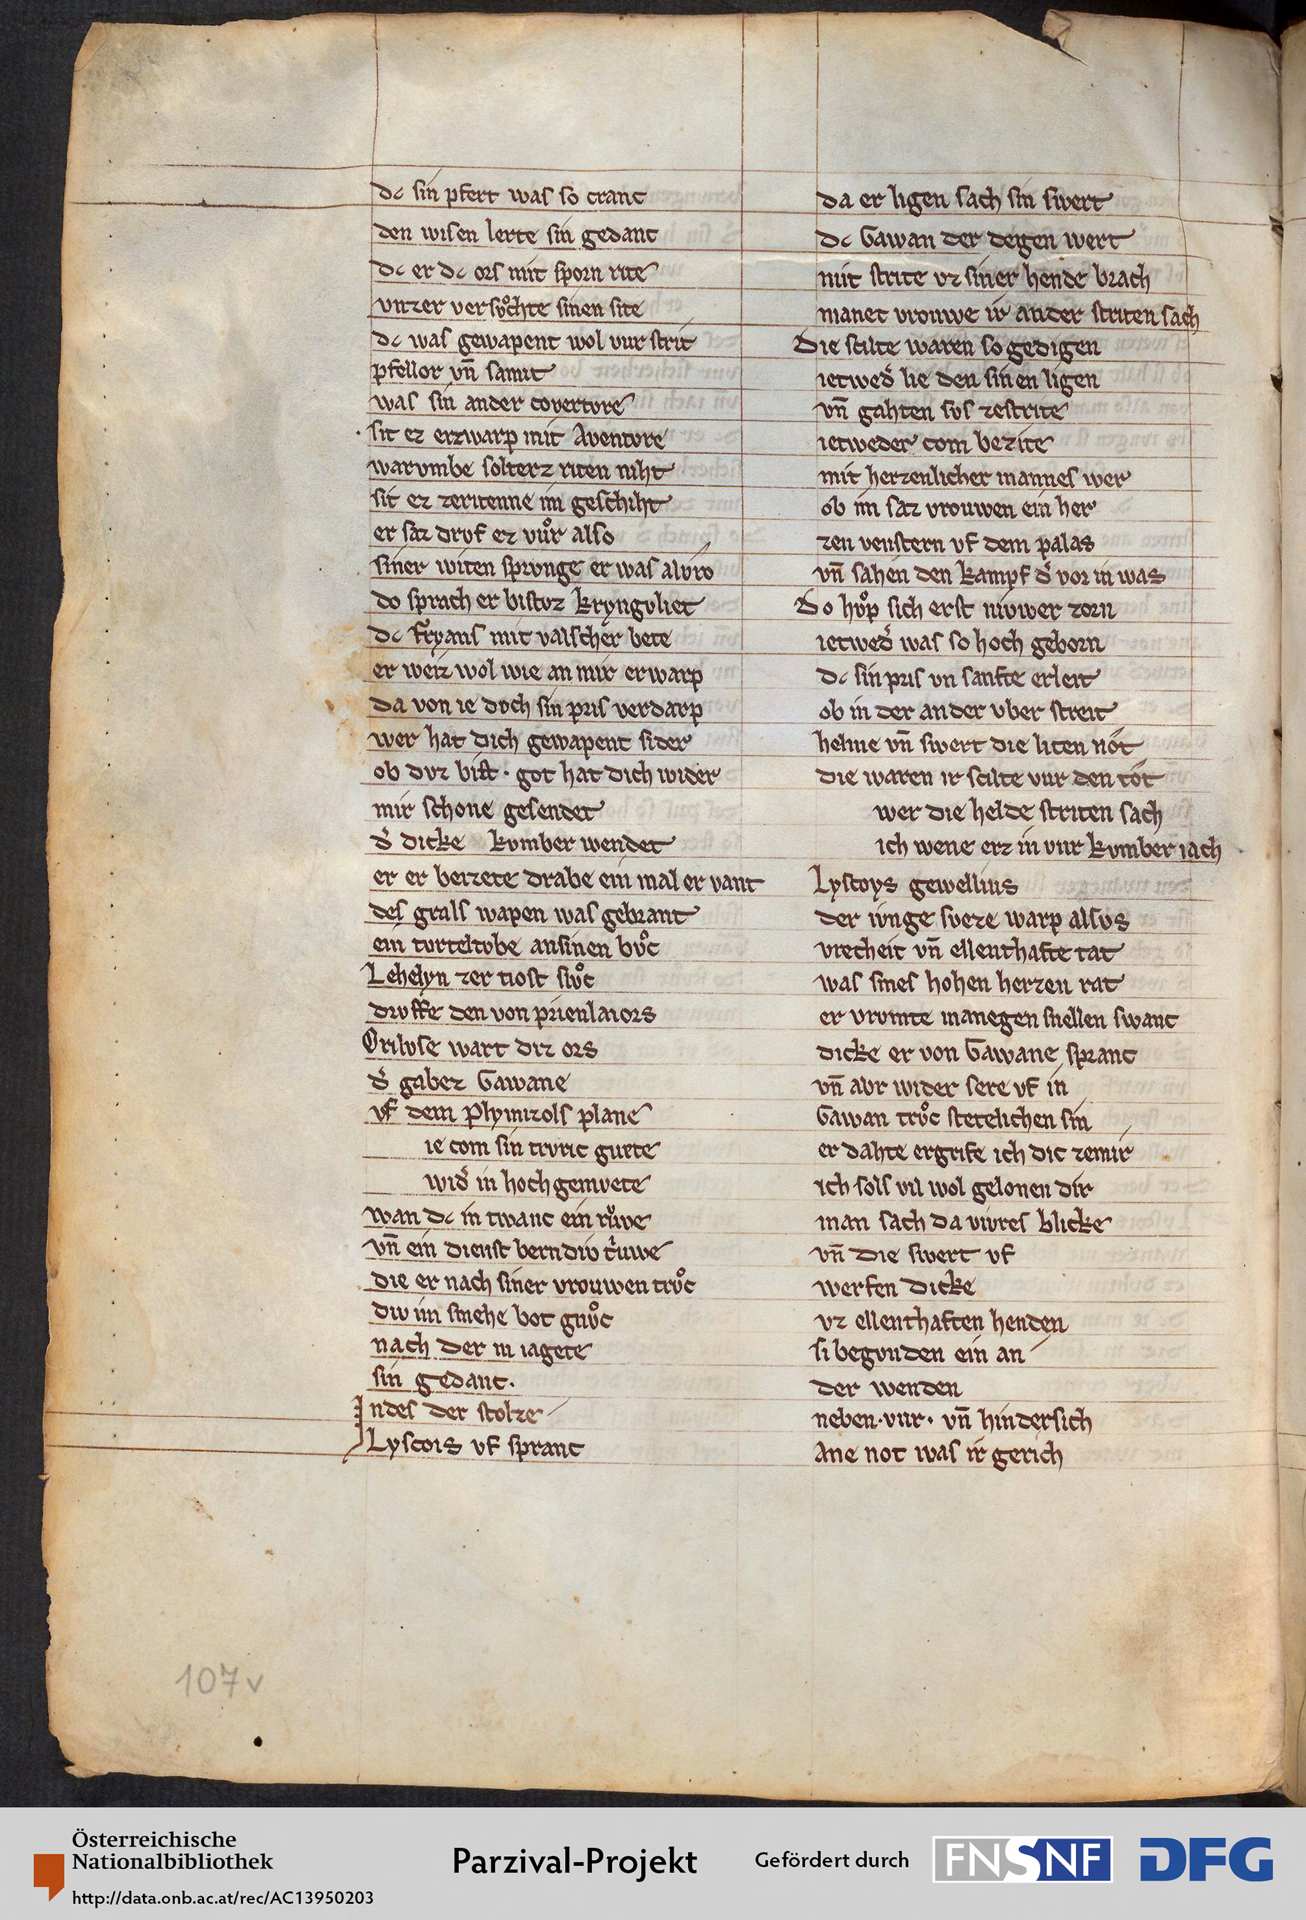 dc sin pfert was so cranc
den wisen lerte sin gedanc
dc er dc ors mit sporn rite
vnzer versvͦchte sinen site
dc was gewapent wol vur strit
pfellor vn̄ samit
was sin ander covertvre
sit ez erzwarp mit Aventvre
warvmbe solterz riten niht
sit ez zeritenne im geschiht
er saz drvf ez vuͦr also
siner witen sprvnge er was alvro
do sprach er bistvz kryngvliet
dc Fryans mit valscher bete
er weiz wol wie an mir erwarp
da von ie doch sin pris verdarp
wer hat dich gewapent sider
ob dvz bist · got hat dich wider
mir schone gesendet
d͛ dicke kvmber wendet
er er beizete drabe ein mal er vant
des grals wapen was gebrant
ein tvrteltvbe an sinen bvͦc
Lehelyn zer tiost slvͦc
drvffe den von prienlaiors
Orilvse wart diz ors
d͛ gabez Gawane
vf dem Plymizols plane
ie com sin trvric guete
wid͛ in hochgemvete
wan dc in twanc ein ruͦwe
vn̄ ein dienst berndiv truwe
die er nach siner vrouwen trvͦc
diu im smehe bot gnvͦc
nach der in iagete
sin gedanc·
Indes der stolze
Lyscois vf spranc
da er ligen sach sin swert
dc Gawan der degen wert
mit strite vz siner hende brach
manec vrouwe ir ander striten sach
Die scilte waren so gedigen
ietwed͛ lie den sinen ligen
vn̄ gahten svs zestrite
ietweder com bezite
mit herzenlicher mannes wer
ob im saz vrouwen ein her
zen venstern vf dem palas
vn̄ sahen den kampf d͛ vor in was
Do hvͦp sich erst niuwer zorn
ietwed͛ was so hoch geborn
dc sin pris vn sanfte erleit
ob in der ander vber streit
helme vn̄ swert die liten not
die waren ir scilte vur den tot
wer die helde striten sach
ich wene erz in vur kvmber iach
Lyscoys gewellius
der ivnge sveze warp alsvs
vrecheit vn̄ ellenthafte tat
was sines hohen herzen rat
er vrvmte manegen snellen swanc
dicke er von Gawane spranc
vn̄ abr wider sere vf in
Gawan trvͦc stetelichen sin
er dahte ergrife ich dic zemir
ich sols vil wol gelonen dir
man sach da vivres blicke
vn̄ die swert vf
werfen dicke
vz ellenthaften henden
si begvnden ein an
der wenden
neben·vur· vn̄ hindersich
Ane not was ir gerich
107v
Österreichische
Nationalbibliothek
http://data.onb.ac.at/rec/AC13950203
Parzival-Projekt
Gefördert durch
FNSNF
DFG